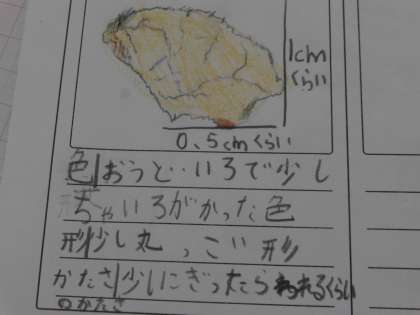 1cm
くらい
0.5cmくらい
色 おうど‥いろで少し
ちゃいろがかった色
形 少し丸っこい形
かたさ 少しにぎったらわれるくらい
のかたさ